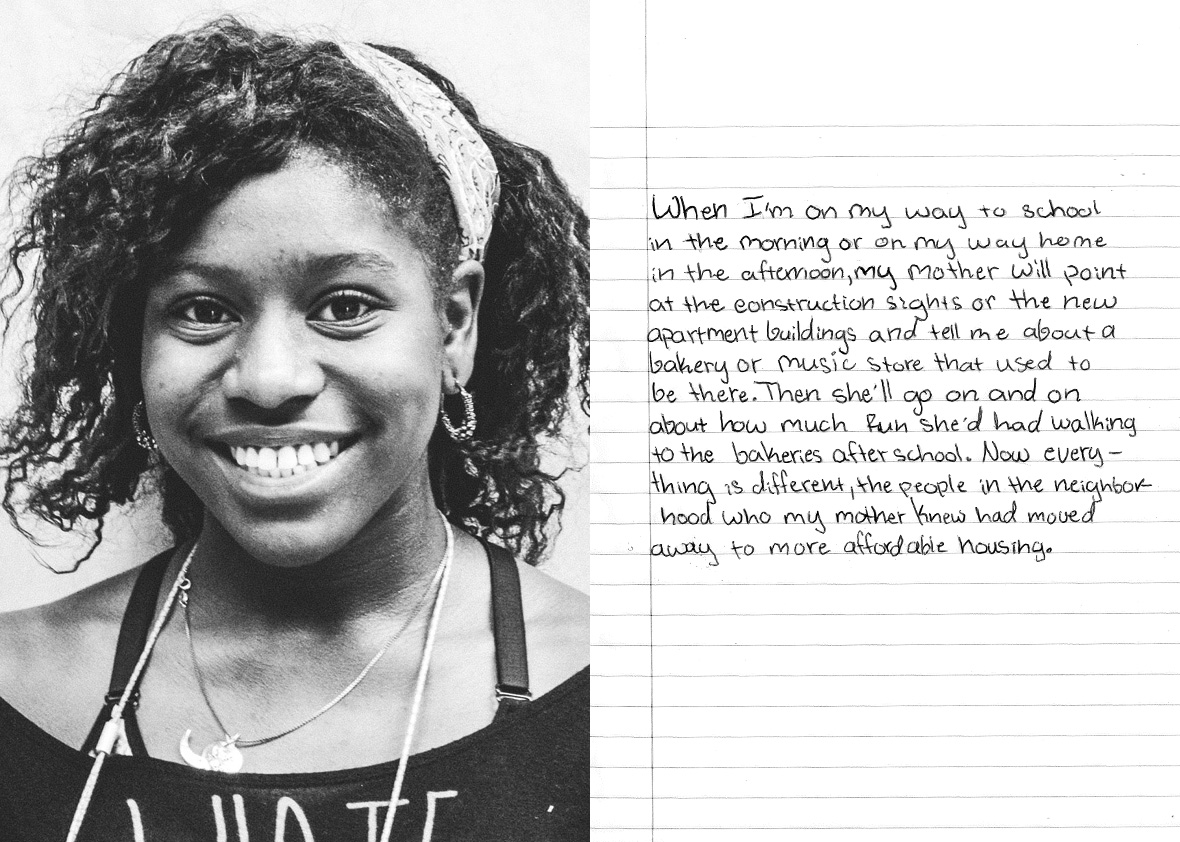 When I'm on my way to school
in the morning or on my way home
in the afternoon, my mother will point
at the construction sights or the new
apartment buildings and tell me about a
bakery or music store that used to
be there. Then she'll go on and on
about how much fun she'd had walking
to the bakeries after school. Now every-
thing is different, the people in the neighbor
hood who my mother knew had moved
away to more affordable housing.